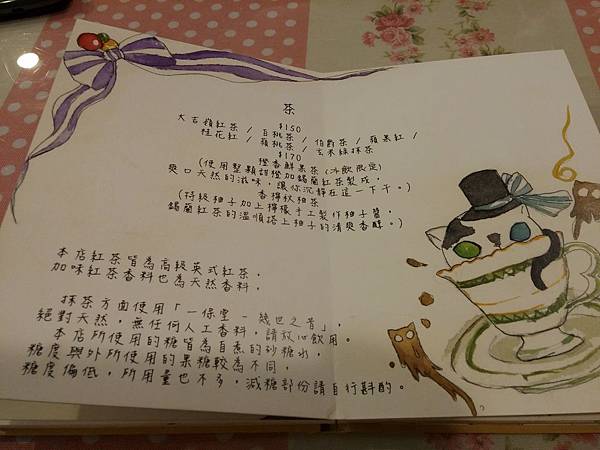 茶
$150
大吉嶺紅茶 / 白桃茶 / 伯爵茶 / 蘋果紅 /
桂花紅 / 蘋桃茶 / 玄米綠抹茶
$170
橙香鮮果茶(冰飲限定)
(使用整顆甜橙加錫蘭紅茶製成,
爽口天然的滋味,讓你沉靜在這一下午。)
香檸秋柚茶
(特級柚子加上檸檬手工製作柚子醬,
錫蘭紅茶的溫順搭上柚子的清爽香醇。)
本店紅茶皆為高級英式紅茶,
加味紅茶香料也為天然香料。
抹茶方面使用「一保堂 - 幾世之昔」,
絕對天然,無任何人工香料,請放心飲用。
本店所使用的糖皆為自煮的砂糖水,
糖度與外所使用的果糖較為不同,
糖度偏低,所用量也不多,減糖部份請自行斟酌。